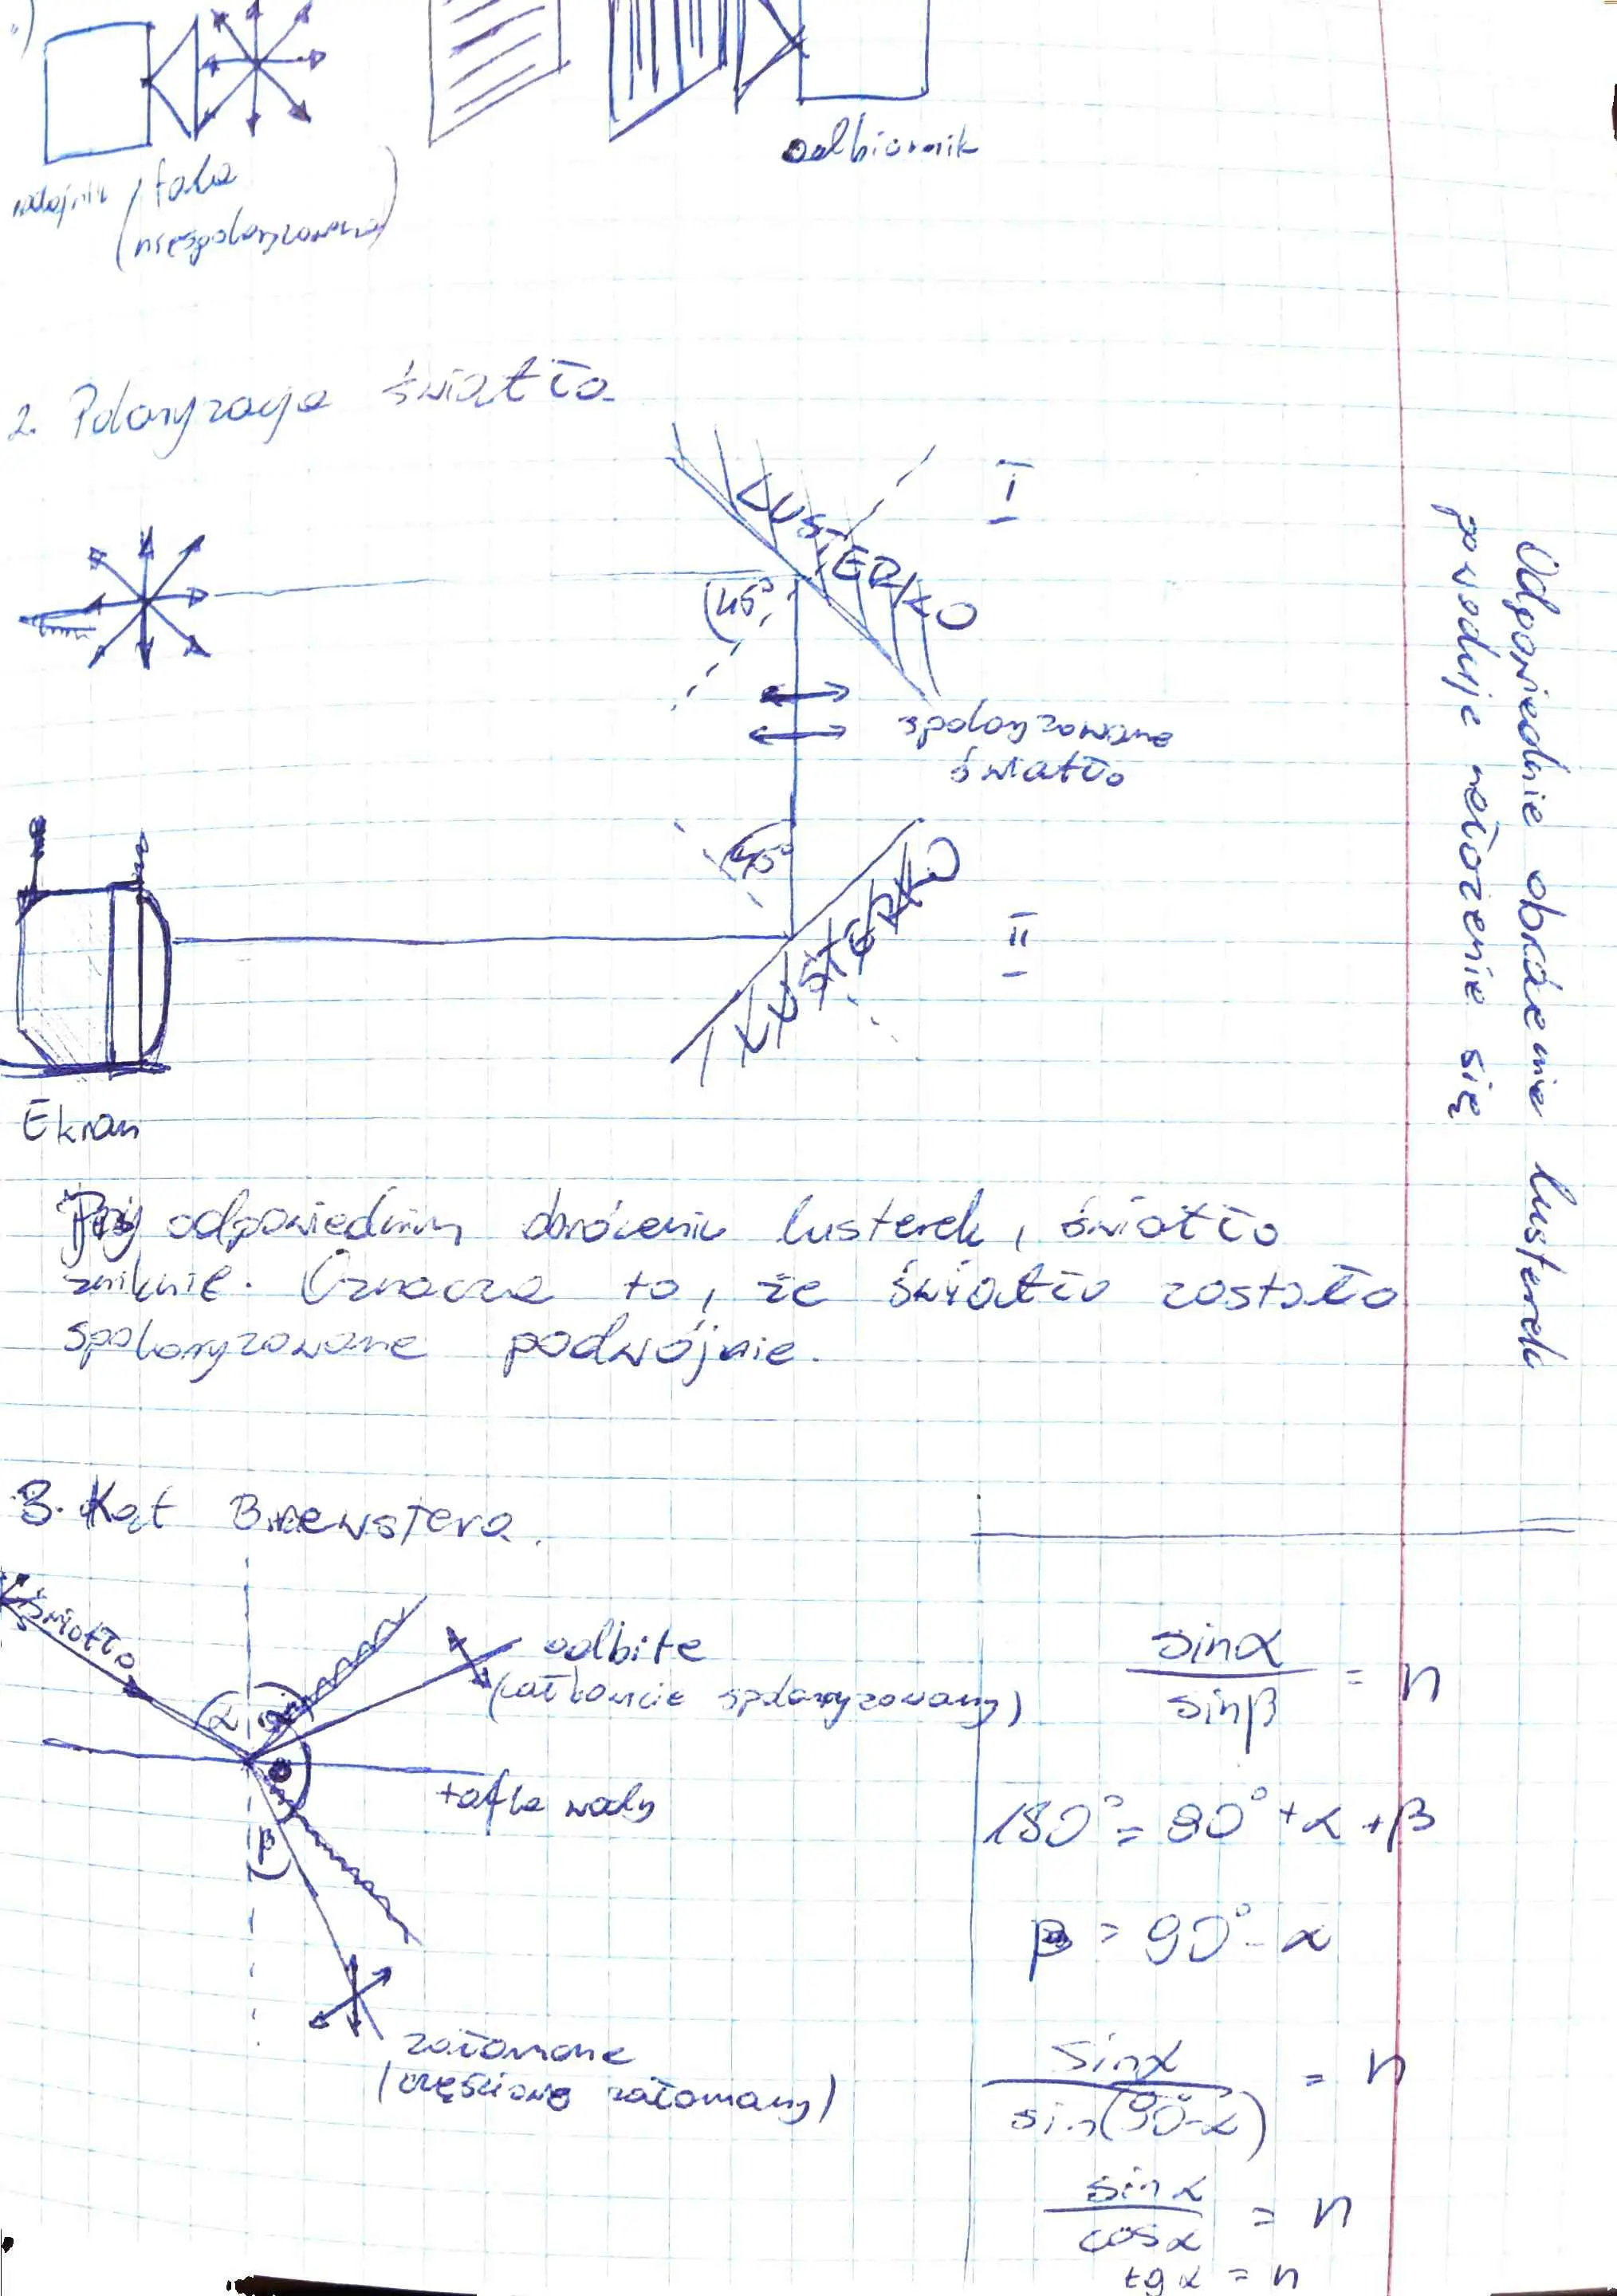 odbiornik
nadajnik (fala
niespolaryzowana)
2. Polaryzacja światła
LUSTERKO
I
45°
spolaryzowane
światło
45°
LUSTERKO
II
Ekran
Odpowiednie obrócenie lusterek
powoduje nałożenie się
Przy odpowiednim obróceniu lusterek, światło
zniknie. Oznacza to, że światło zostało
spolaryzowane podwójnie.
3. Kąt Brewstera.
światło
α α
odbite
(całkowicie spolaryzowany)
tafla wody
β
załamane
(częściowo załamany)
sinα / sinβ = n
180° = 90° + α + β
β = 90° - α
sinα / sin(90°-α) = n
sinα / cosα = n
tgα = n